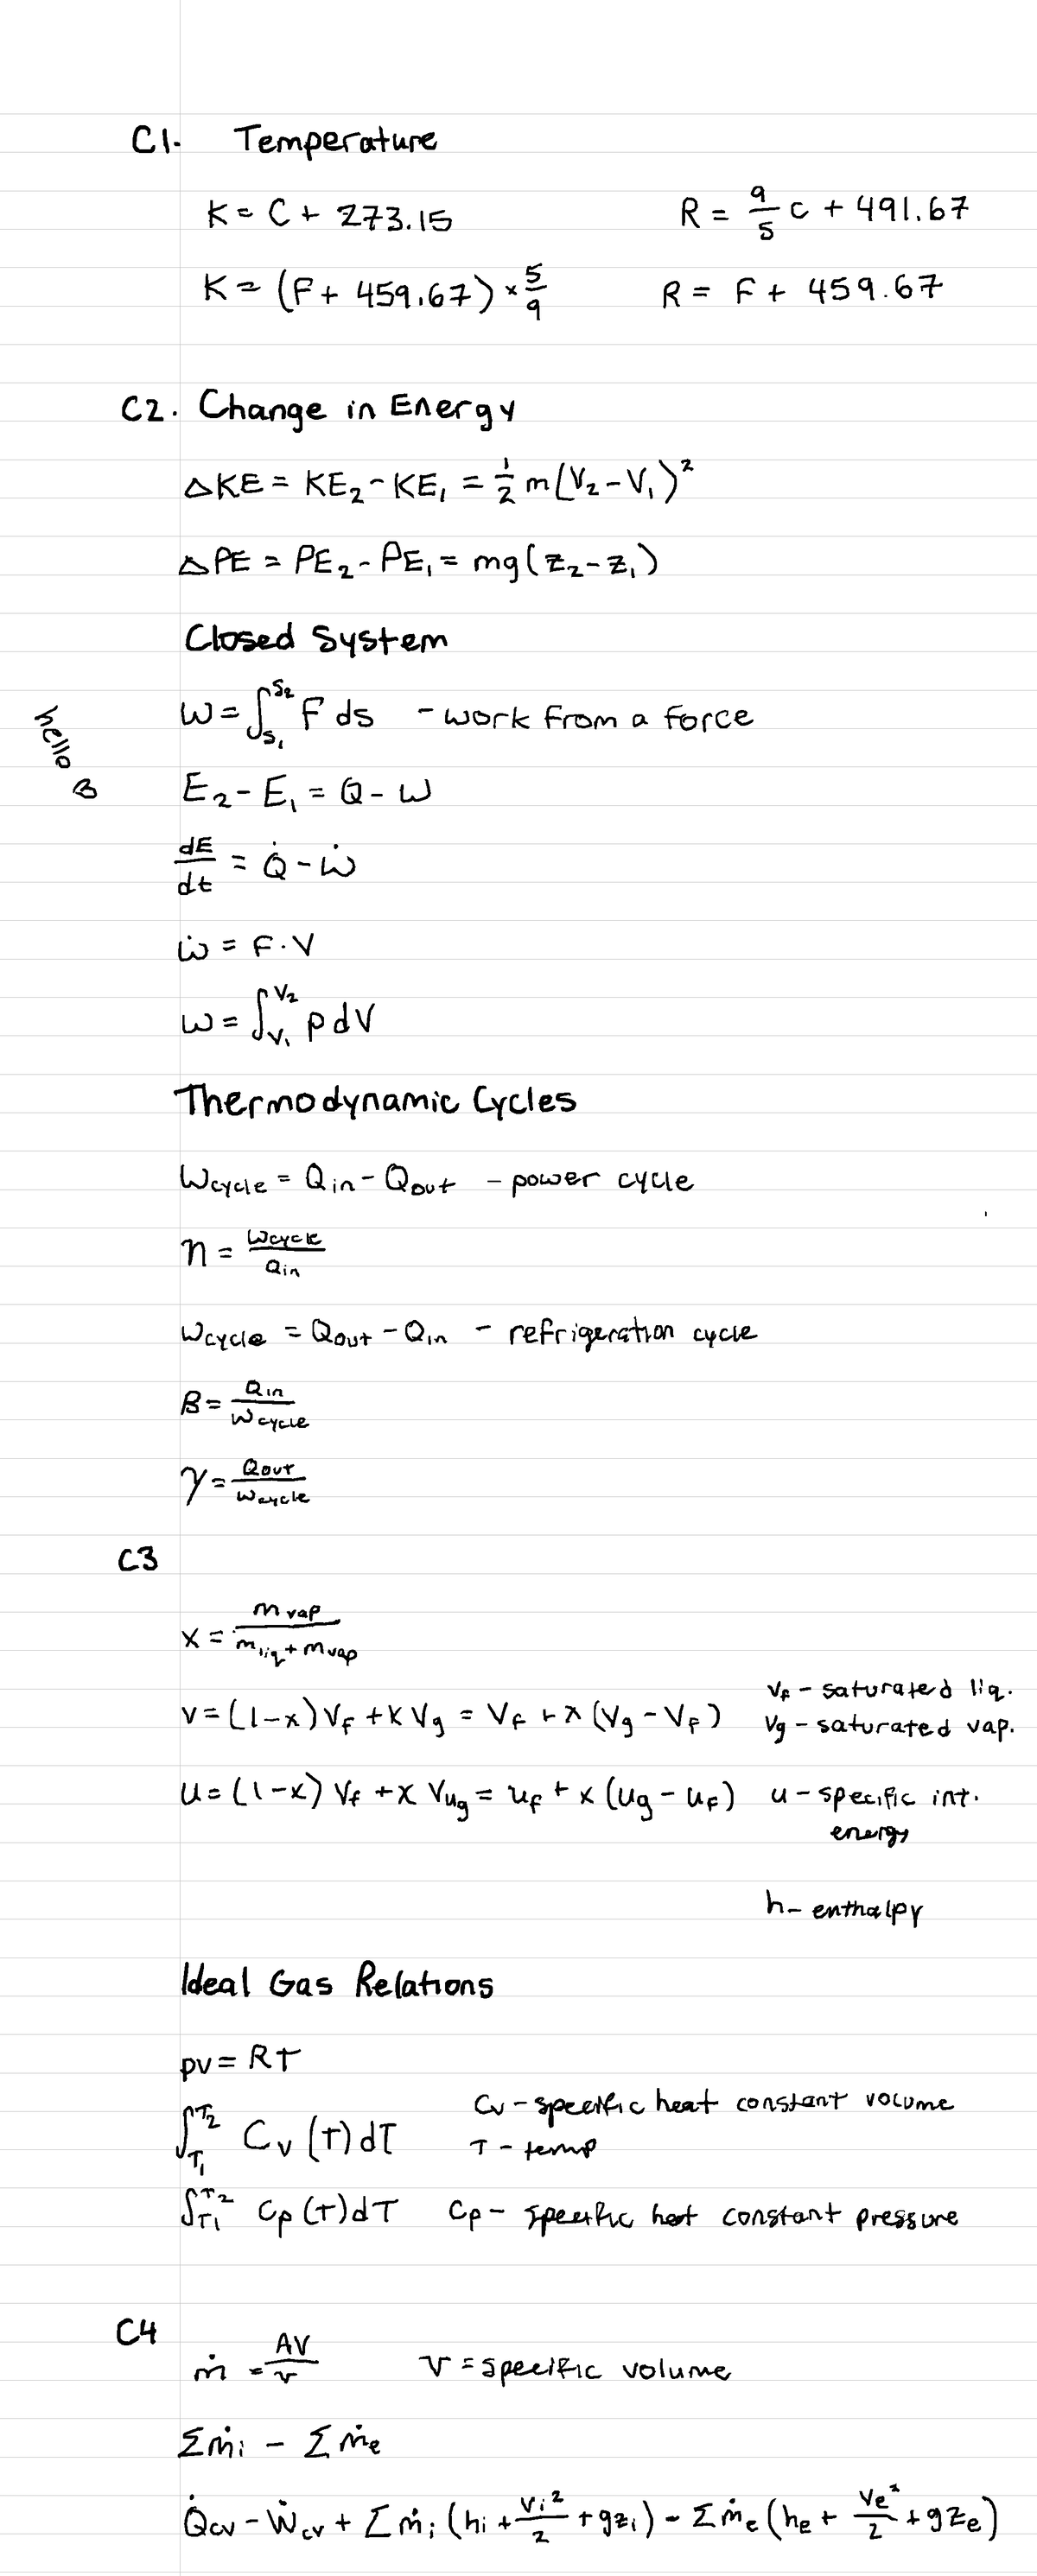 C1. Temperature
K = C + 273.15    R = 9/5 C + 491.67
K = (F + 459.67) × 5/9    R = F + 459.67
C2. Change in Energy
ΔKE = KE₂ - KE₁ = 1/2 m (V₂ - V₁)²
ΔPE = PE₂ - PE₁ = mg (z₂ - z₁)
Closed System
W = ∫_{S₁}^{S₂} F ds - work from a force
hello B
E₂ - E₁ = Q - W
dE/dt = Q̇ - Ẇ
Ẇ = F · V
W = ∫_{V₁}^{V₂} p dV
Thermodynamic Cycles
W_cycle = Q_in - Q_out - power cycle
η = W_cycle / Q_in
W_cycle = Q_out - Q_in - refrigeration cycle
β = Q_in / W_cycle
γ = Q_out / W_cycle
C3
x = m_vap / (m_liq + m_vap)
v_f - saturated liq.
v = (1-x) v_f + x v_g = v_f + x (v_g - v_f)    v_g - saturated vap.
u = (1-x) v_f + x v_ug = u_f + x (u_g - u_f)    u - specific int.
energy
h - enthalpy
Ideal Gas Relations
pv = RT
∫_{T₁}^{T₂} C_v (T) dT    C_v - specific heat constant volume
T - temp
∫_{T1}^{T2} C_p (T) dT    C_p - specific heat constant pressure
C4
ṁ = AV/v    v = specific volume
Σṁ_i - Σṁ_e
Q̇_cv - Ẇ_cv + Σṁ_i (h_i + V_i²/2 + gz_i) - Σṁ_e (h_e + V_e²/2 + gz_e)